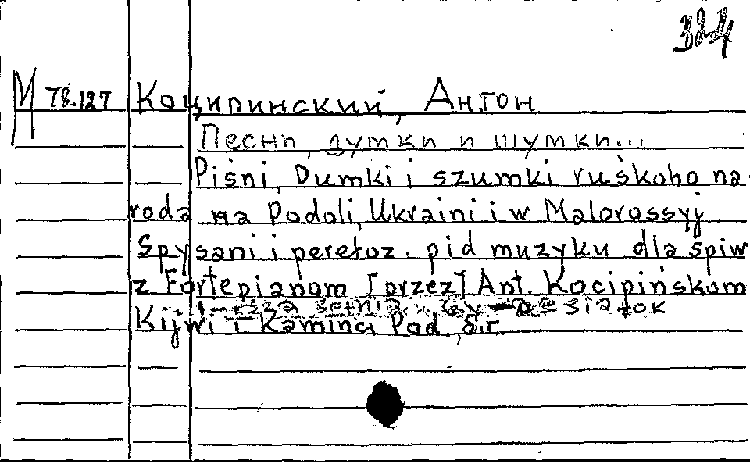 324
М 78.127 Коципинский, Антон
Песни, думки и шумки...
Piśni, Dumki i szumki ruśkoho na-
roda na Podoli, Ukraini i w Małorossyj
Spysani i perełoz. pid muzyku dla śpiw
z Fortepianom [przez] Ant. Kocipińskom
Kijwi i Kamińci Pod